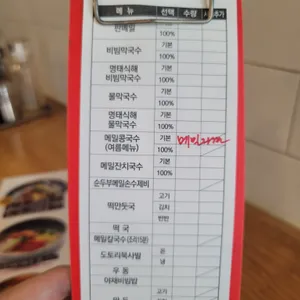 메 뉴 선택 수량 추가
판메밀 기본
100%
비빔막국수 기본
100%
명태식해
비빔막국수 기본
100%
물막국수 기본
100%
명태식해
물막국수 기본
100%
메밀콩국수
(여름메뉴) 기본
100%
메밀잔치국수 기본
100%
순두부메밀손수제비
떡만둣국 고기
김치
반반
떡 국
메밀칼국수
도토리묵사발 온
냉
우 동
야채비빔밥
고기